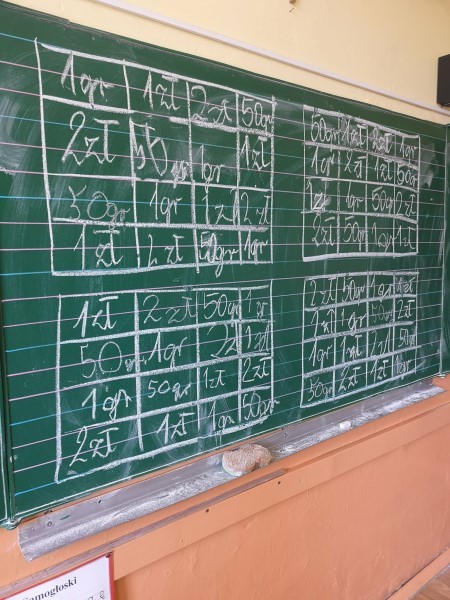 1gr 1zł 2zł 50gr
2zł 50gr 1gr 1zł
50gr 1gr 1zł 2zł
1zł 2zł 50gr 1gr
50gr 1zł 2zł 1gr
1gr 2zł 1zł 50gr
1zł 1gr 50gr 2zł
2zł 50gr 1gr 1zł
1zł 2zł 50gr
50gr 1gr 2zł 1zł
1gr 50gr 1zł 2zł
2zł 1zł 1gr 50gr
2zł 50gr 1gr 1zł
1gr 50gr 2zł
1gr 1zł 2zł 50gr
50gr 2zł 1zł 1gr
Samogłoski